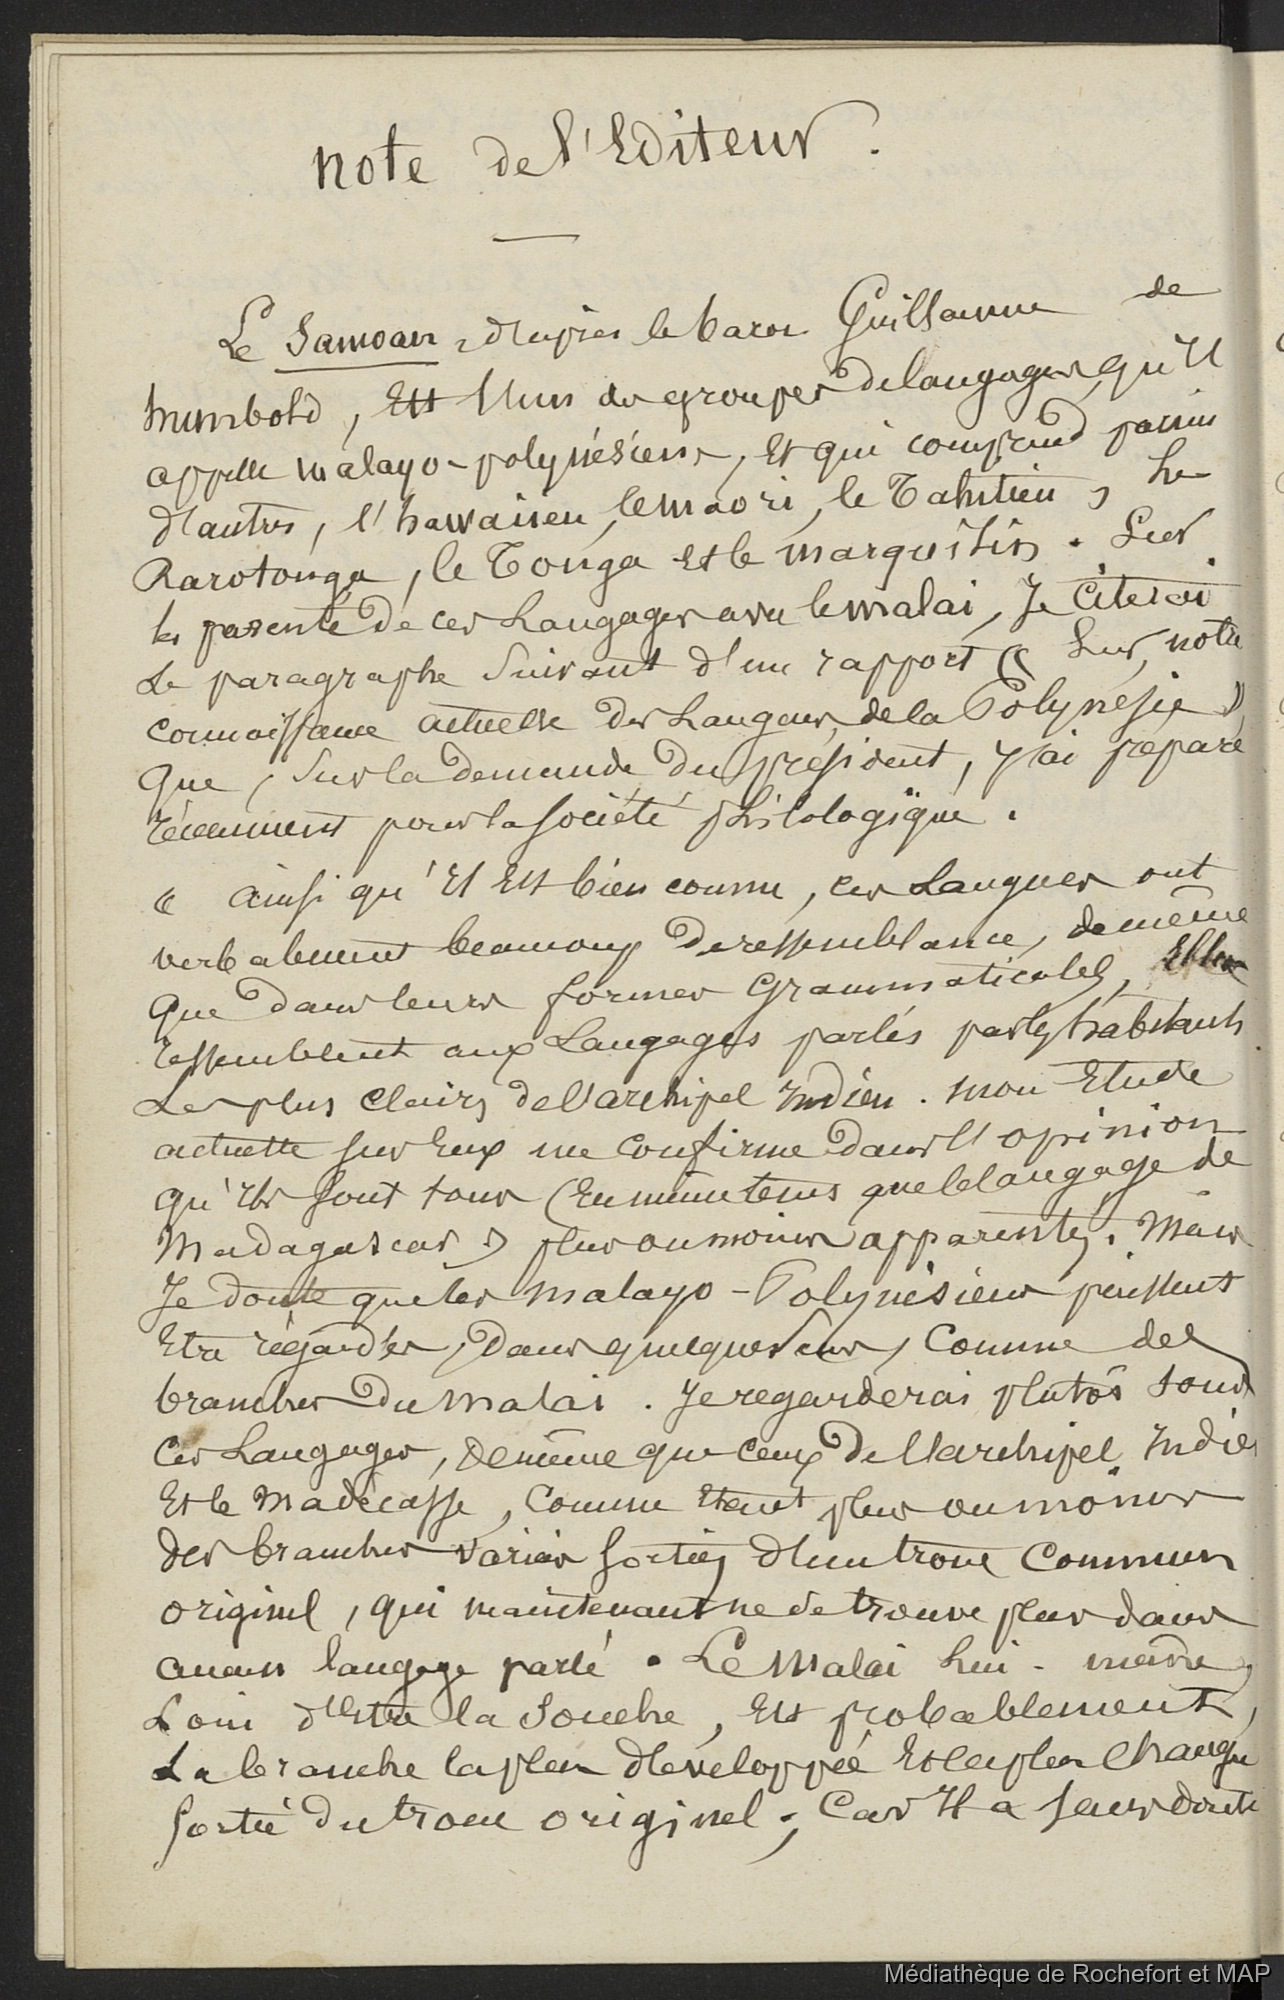 note de l'Editeur.
Le Samoan, d'après le baron Guillaume de
humbold, Est l'un des groupes de langages qu'il
appelle malayo-polynésiens, Et qui comprend parmi
d'autres, l'hawaiien, le maori, le Tahitien, le
Rarotonga, le Tonga et le marquisien. Sur
la parenté de ces Langages avec le malai, Je Citerai
Le paragraphe Suivant d'un rapport « Sur notre
connaissance actuelle des Langues de la Polynésie »,
que, Sur la demande du président, j'ai préparé
récemment pour la société philologique.
« ainsi qu'il Est bien connu, ces Langues ont
verbalement beaucoup de ressemblance, de même
que dans leurs formes grammaticales, Elles
ressemblent aux Langages parlés par les habitants
Les plus Clairs de l'archipel Indien. mon Etude
actuelle sur Eux me confirme dans l'opinion
qu'ils sont tous (En même tems que le langage de
Madagascar) plus ou moins apparentés. Mais
Je doute que les malayo-Polynésiens puissent
Etre regardés, Dans quelque Sens, Comme des
branches Du malai. Je regarderai plutôt tous
Ces Langages, de même que ceux De l'archipel Indien
Et le Madécasse, Comme Etant plus ou moins
des branches variées sorties d'un tronc Commun
originel, qui maintenant ne se trouve plus dans
aucun langage parlé. Le Malai lui-même,
Loin d'Etre la Souche, Est probablement,
La branche la plus développée Et la plus Changée
Sortie du tronc originel; Car Il a sans doute
Médiathèque de Rochefort et MAP